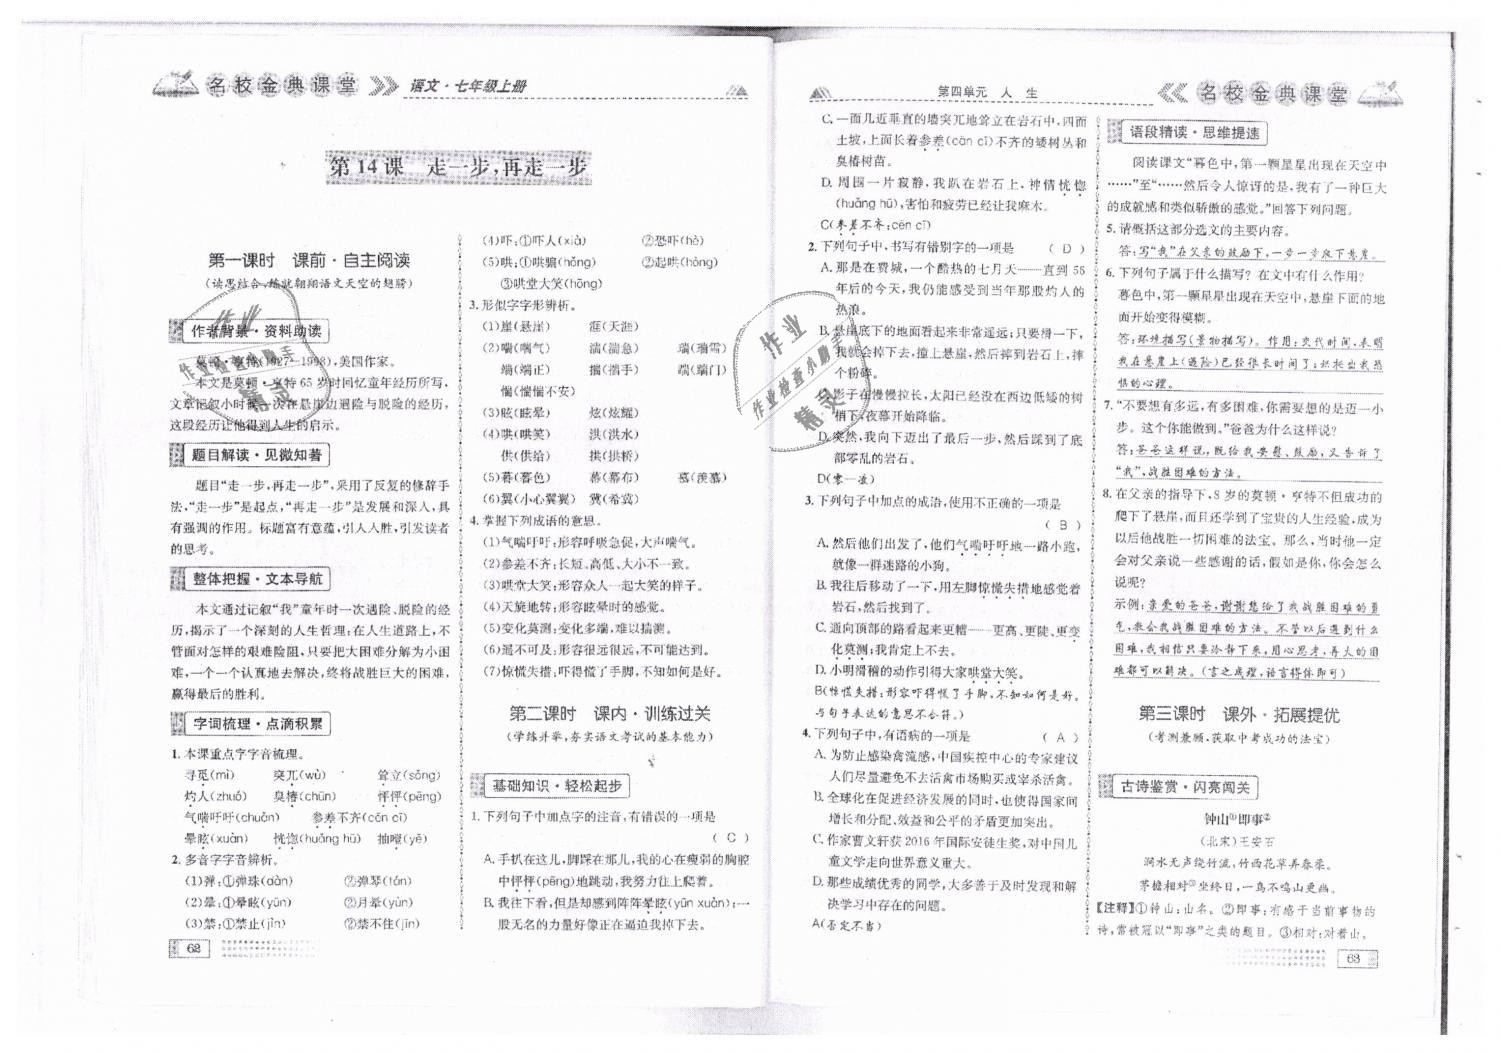 名校金典课堂 语文·七年级上册
第14课 走一步,再走一步
第一课时 课前·自主阅读
(读思结合,练就翱翔语文天空的翅膀)
作者背景·资料助读
莫顿·亨特(1927—1998),美国作家。
本文是莫顿·亨特65岁时回忆童年经历所写,
文章记叙小时候一次在悬崖边遇险与脱险的经历,
这段经历让他得到人生的启示。
题目解读·见微知著
题目“走一步,再走一步”,采用了反复的修辞手
法,“走一步”是起点,“再走一步”是发展和深入,具
有强调的作用。标题富有意蕴,引人入胜,引发读者
的思考。
整体把握·文本导航
本文通过记叙“我”童年时一次遇险、脱险的经
历,揭示了一个深刻的人生哲理:在人生道路上,不
管面对怎样的艰难险阻,只要把大困难分解为小困
难,一个一个认真地去解决,终将战胜巨大的困难,
赢得最后的胜利。
字词梳理·点滴积累
1.本课重点字字音梳理。
寻觅(mì) 突兀(wù) 耸立(sǒng)
灼人(zhuó) 臭椿(chūn) 怦怦(pēng)
气喘吁吁(chuǎn) 参差不齐(cēn cī)
晕眩(xuàn) 恍惚(huǎng hū) 抽噎(yē)
2.多音字字音辨析。
(1)弹:①弹珠(dàn) ②弹琴(tán)
(2)晕:①晕眩(yūn) ②月晕(yùn)
(3)禁:①禁止(jìn) ②禁不住(jīn)
62
(4)吓:①吓人(xià) ②恐吓(hè)
(5)哄:①哄骗(hǒng) ②起哄(hòng)
③哄堂大笑(hōng)
3.形似字字形辨析。
(1)崖(悬崖) 涯(天涯)
(2)喘(喘气) 湍(湍急) 瑞(瑞雪)
端(端正) 揣(揣手) 端(端门)
惴(惴惴不安)
(3)眩(眩晕) 炫(炫耀)
(4)哄(哄笑) 洪(洪水)
供(供给) 拱(拱桥)
(5)暮(暮色) 幕(幕布) 慕(羡慕)
(6)翼(小心翼翼) 冀(希冀)
4.掌握下列成语的意思。
(1)气喘吁吁:形容呼吸急促,大声喘气。
(2)参差不齐:长短、高低、大小不一致。
(3)哄堂大笑:形容众人一起大笑的样子。
(4)天旋地转:形容眩晕时的感觉。
(5)变化莫测:变化多端,难以揣测。
(6)遥不可及:形容很远很远,不可能达到。
(7)惊慌失措:吓得慌了手脚,不知如何是好。
第二课时 课内·训练过关
(学练并举,夯实语文考试的基本能力)
基础知识·轻松起步
1.下列句子中加点字的注音,有错误的一项是
( C )
A.手扒在这儿,脚踩在那儿,我的心在瘦弱的胸腔
中怦怦(pēng)地跳动,我努力往上爬着。
B.我往下看,但是却感到阵阵晕眩(yūn xuàn);一
股无名的力量好像正在逼迫我掉下去。
第四单元 人 生 名校金典课堂
C.一面几近垂直的墙突兀地耸立在岩石中,四面
土坡,上面长着参差(cān cī)不齐的矮树丛和
臭椿树苗。
D.周围一片寂静,我趴在岩石上,神情恍惚
(huǎng hū),害怕和疲劳已经让我麻木。
C(参差不齐:cēn cī)
2.下列句子中,书写有错别字的一项是 ( D )
A.那是在费城,一个酷热的七月天——直到56
年后的今天,我仍能感受到当年那股灼人的
热浪。
B.悬崖底下的地面看起来非常遥远;只要滑一下,
我就会掉下去,撞上悬崖,然后摔到岩石上,摔
个粉碎。
C.影子在慢慢拉长,太阳已经没在西边低矮的树
梢下,夜幕开始降临。
D.突然,我向下迈出了最后一步,然后踩到了底
部零乱的岩石。
D(零—凌)
3.下列句子中加点的成语,使用不正确的一项是
( B )
A.然后他们出发了,他们气喘吁吁地一路小跑,
就像一群迷路的小狗。
B.我往后移动了一下,用左脚惊慌失措地感觉着
岩石,然后找到了。
C.通向顶部的路看起来更糟——更高、更陡、更变
化莫测;我肯定上不去。
D.小明滑稽的动作引得大家哄堂大笑。
B(惊慌失措:形容吓得慌了手脚,不知如何是好。
与句子表达的意思不合符。)
4.下列句子中,有语病的一项是 ( A )
A.为防止感染禽流感,中国疾控中心的专家建议
人们尽量避免不去活禽市场购买或宰杀活禽。
B.全球化在促进经济发展的同时,也使得国家间
增长和分配、效益和公平的矛盾更加突出。
C.作家曹文轩获2016年国际安徒生奖,对中国儿
童文学走向世界意义重大。
D.那些成绩优秀的同学,大多善于及时发现和解
决学习中存在的问题。
A(否定不当)
语段精读·思维提速
阅读课文“暮色中,第一颗星星出现在天空中
……”至“……然后令人惊讶的是,我有了一种巨大
的成就感和类似骄傲的感觉。”回答下列问题。
5.请概括这部分选文的主要内容。
答:写“我”在父亲的鼓励下,一步一步爬下悬崖。
6.下列句子属于什么描写?在文中有什么作用?
暮色中,第一颗星星出现在天空中,悬崖下面的地
面开始变得模糊。
答:环境描写(景物描写)。作用:交代时间,表明
我在悬崖上(遇险)已经很长时间了;烘托出我恐
惧的心理。
7.“不要想有多远,有多困难,你需要想的是迈一小
步。这个你能做到。”爸爸为什么这样说?
答:爸爸这样说,既给我安慰、鼓励,又告诉了
“我”,战胜困难的方法。
8.在父亲的指导下,8岁的莫顿·亨特不但成功的
爬下了悬崖,而且还学到了宝贵的人生经验,成为
以后他战胜一切困难的法宝。那么,当时他一定
会对父亲说一些感谢的话,假如是你,你会怎么
说呢?
示例:亲爱的爸爸,谢谢您给了我战胜困难的勇
气,教会我战胜困难的方法。不管以后遇到什么
困难,我相信只要冷静下来,用心思考,再大的困
难都可以解决。(言之成理,语言得体即可)
第三课时 课外·拓展提优
(考测兼顾,获取中考成功的法宝)
古诗鉴赏·闪亮闯关
钟山①即事②
(北宋)王安石
涧水无声绕竹流,竹西花草弄春柔。
茅檐相对③坐终日,一鸟不鸣山更幽。
【注释】①钟山:山名。②即事:有感于当前事物的
诗,常被冠以“即事”之类的题目。③相对:对着山。
63
作业
作业检查小助手
精灵
作业
作业检查小助手
精灵